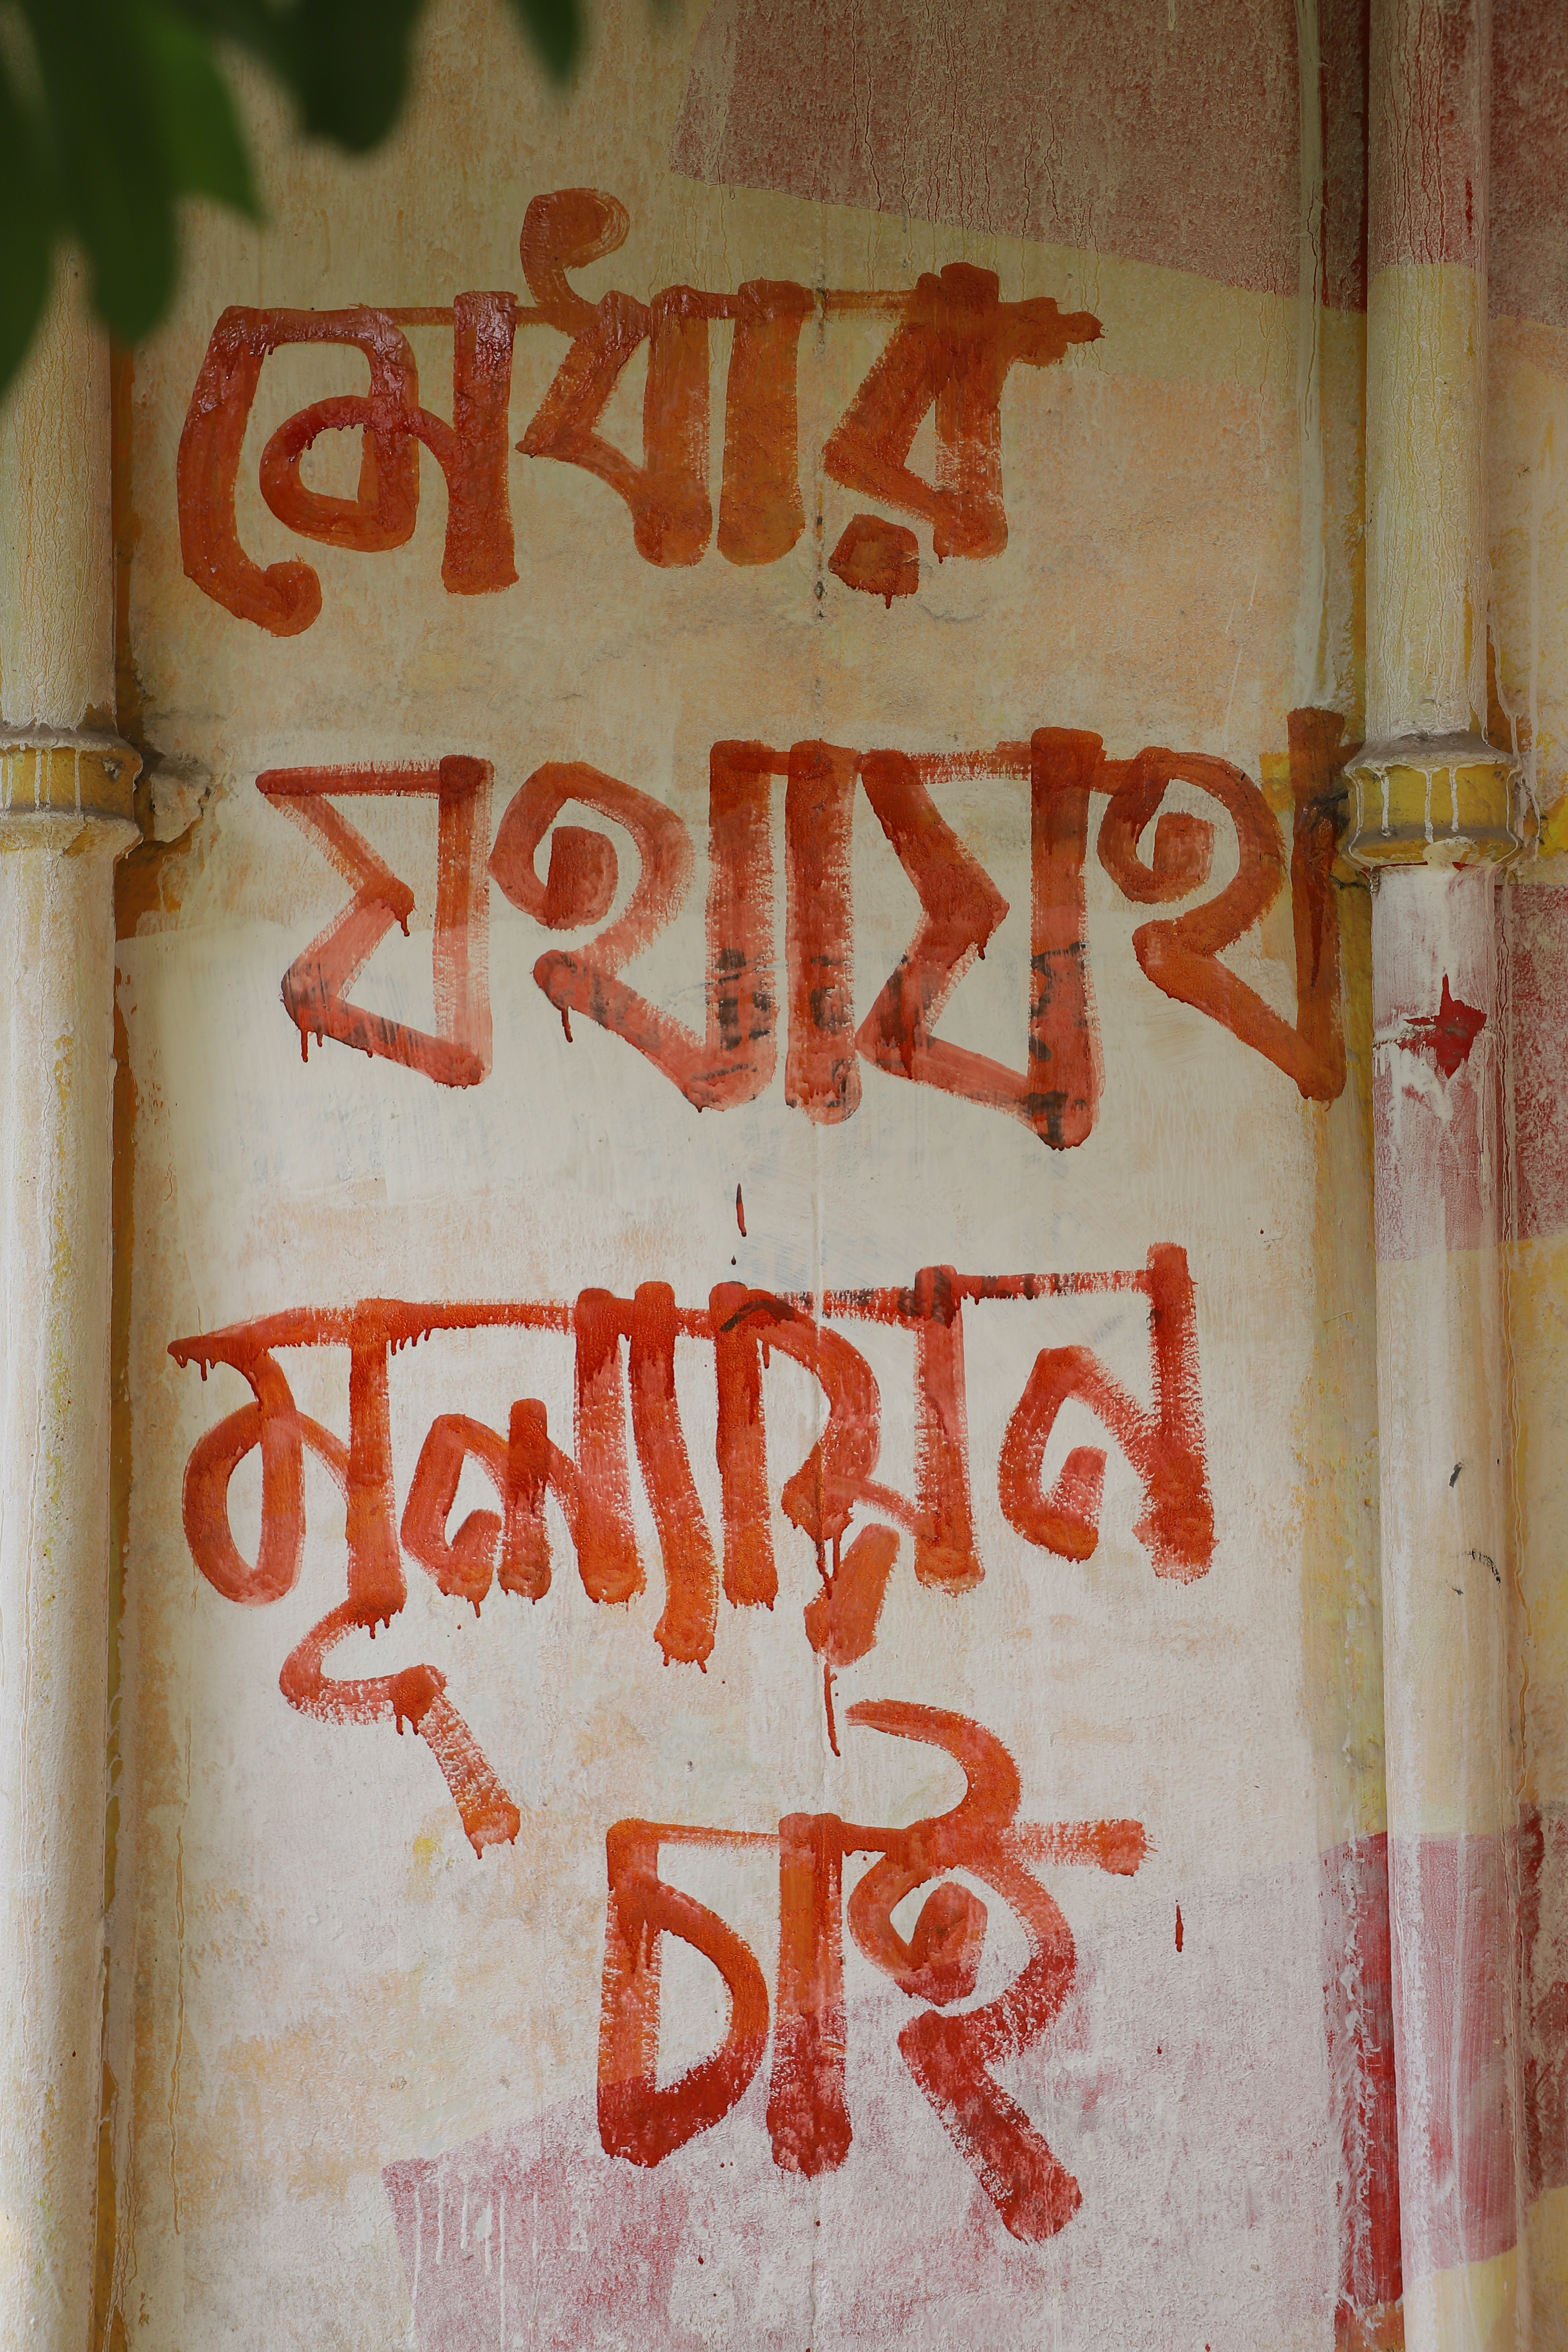 মেধার
যথাযথ
মূল্যায়ন
চাই